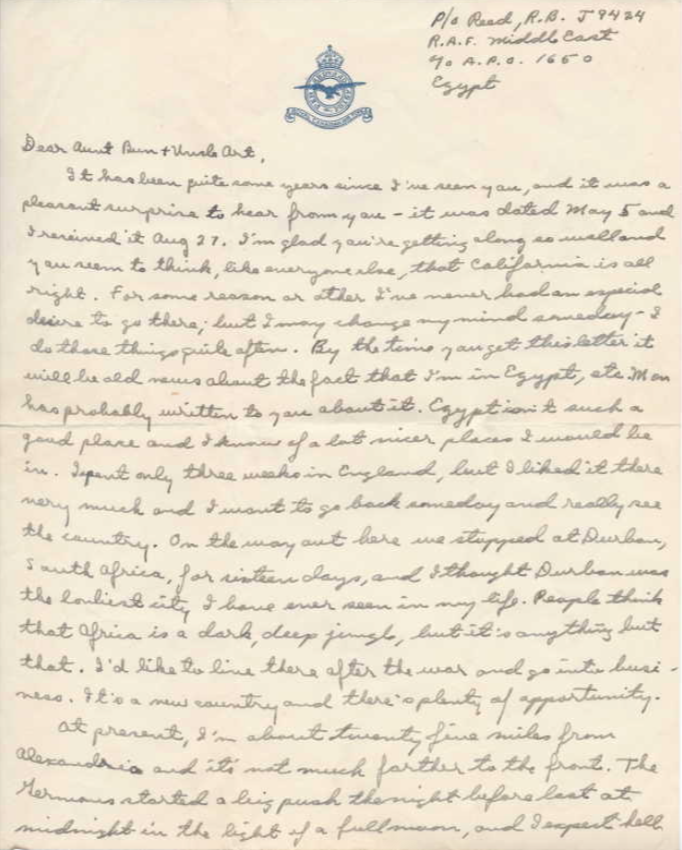 P/o Reed, R.B. J 9424
R.A.F. Middle East
c/o A.P.O. 1650
Egypt
Dear Aunt Bun + Uncle Art,
It has been quite some years since I've seen you, and it was a
pleasant surprise to hear from you - it was dated May 5 and
I received it Aug 27. I'm glad you're getting along so well and
you seem to think, like everyone else, that California is all
right. For some reason or other I've never had an especial
desire to go there, but I may change my mind someday - I
do those things quite often. By the time you get this letter it
will be old news about the fact that I'm in Egypt, etc. Mom
has probably written to you about it. Egypt isn't such a
good place and I know of a lot nicer places I would be
in. I spent only three weeks in England, but I liked it there
very much and I want to go back someday and really see
the country. On the way out here we stopped at Durban,
South Africa, for sixteen days, and I thought Durban was
the lovliest city I have ever seen in my life. People think
that Africa is a dark, deep jungle, but it's anything but
that. I'd like to live there after the war and go into busi-
ness. It's a new country and there's plenty of opportunity.
At present, I'm about twenty five miles from
Alexandria and it's not much farther to the front. The
Germans started a big push the night before last at
midnight in the light of a full moon, and I expect hell